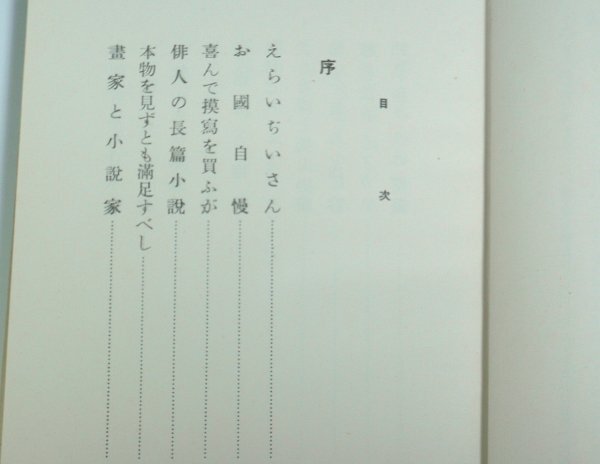 目次
序
えらいぢいさん
お國自慢
喜んで摸寫を買ふが
俳人の長篇小說
本物を見ずとも滿足すべし
畫家と小說家